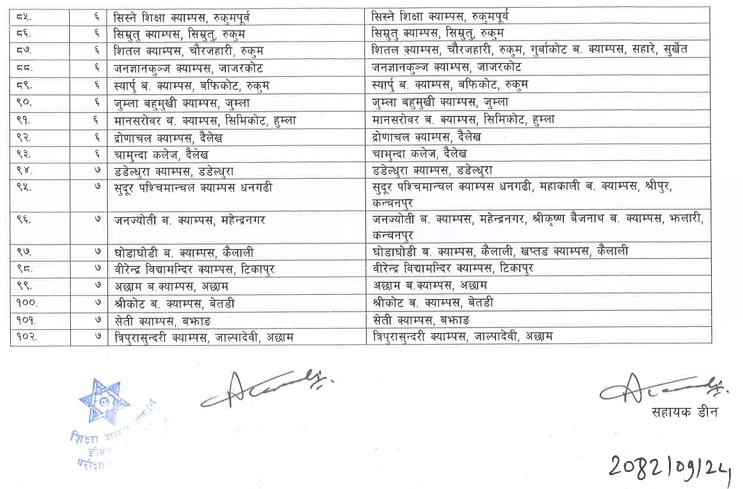 ८५. ६ सिस्ने शिक्षा क्याम्पस, रुकुमपूर्व सिस्ने शिक्षा क्याम्पस, रुकुमपूर्व
८६. ६ सिम्रुतु क्याम्पस, सिम्रुतु, रुकुम सिम्रुतु क्याम्पस, सिम्रुतु, रुकुम
८७. ६ शितल क्याम्पस, चौरजहारी, रुकुम शितल क्याम्पस, चौरजहारी, रुकुम, गुर्बाकोट ब. क्याम्पस, सहारे, सुर्खेत
८८. ६ जनज्ञानकुञ्ज क्याम्पस, जाजरकोट जनज्ञानकुञ्ज क्याम्पस, जाजरकोट
८९. ६ स्यार्पु ब. क्याम्पस, बफिकोट, रुकुम स्यार्पु ब. क्याम्पस, बफिकोट, रुकुम
९०. ६ जुम्ला बहुमुखी क्याम्पस, जुम्ला जुम्ला बहुमुखी क्याम्पस, जुम्ला
९१. ६ मानसरोवर ब. क्याम्पस, सिमिकोट, हुम्ला मानसरोवर ब. क्याम्पस, सिमिकोट, हुम्ला
९२. ६ द्रोणाचल क्याम्पस, दैलेख द्रोणाचल क्याम्पस, दैलेख
९३. ६ चामुन्दा कलेज, दैलेख चामुन्दा कलेज, दैलेख
९४. ७ डडेल्धुरा क्याम्पस, डडेल्धुरा डडेल्धुरा क्याम्पस, डडेल्धुरा
९५. ७ सुदूर पश्चिमान्चल क्याम्पस धनगढी सुदूर पश्चिमान्चल क्याम्पस धनगढी, महाकाली ब. क्याम्पस, श्रीपुर,
कन्चनपुर
९६. ७ जनज्योती ब. क्याम्पस, महेन्द्रनगर जनज्योती ब. क्याम्पस, महेन्द्रनगर, श्रीकृष्ण बैजनाथ ब. क्याम्पस, झलारी,
कन्चनपुर
९७. ७ घोडाघोडी ब. क्याम्पस, कैलाली घोडाघोडी ब. क्याम्पस, कैलाली, खप्तड क्याम्पस, कैलाली
९८. ७ वीरेन्द्र विद्यामन्दिर क्याम्पस, टिकापुर वीरेन्द्र विद्यामन्दिर क्याम्पस, टिकापुर
९९. ७ अछाम ब.क्याम्पस, अछाम अछाम ब.क्याम्पस, अछाम
१००. ७ श्रीकोट ब. क्याम्पस, बेतडी श्रीकोट ब. क्याम्पस, बेतडी
१०१. ७ सेती क्याम्पस, बझाङ सेती क्याम्पस, बझाङ
१०२. ७ त्रिपुरासुन्दरी क्याम्पस, जाल्पादेवी, अछाम त्रिपुरासुन्दरी क्याम्पस, जाल्पादेवी, अछाम
सहायक डीन
शिक्षा शास्त्र
2082/09/24